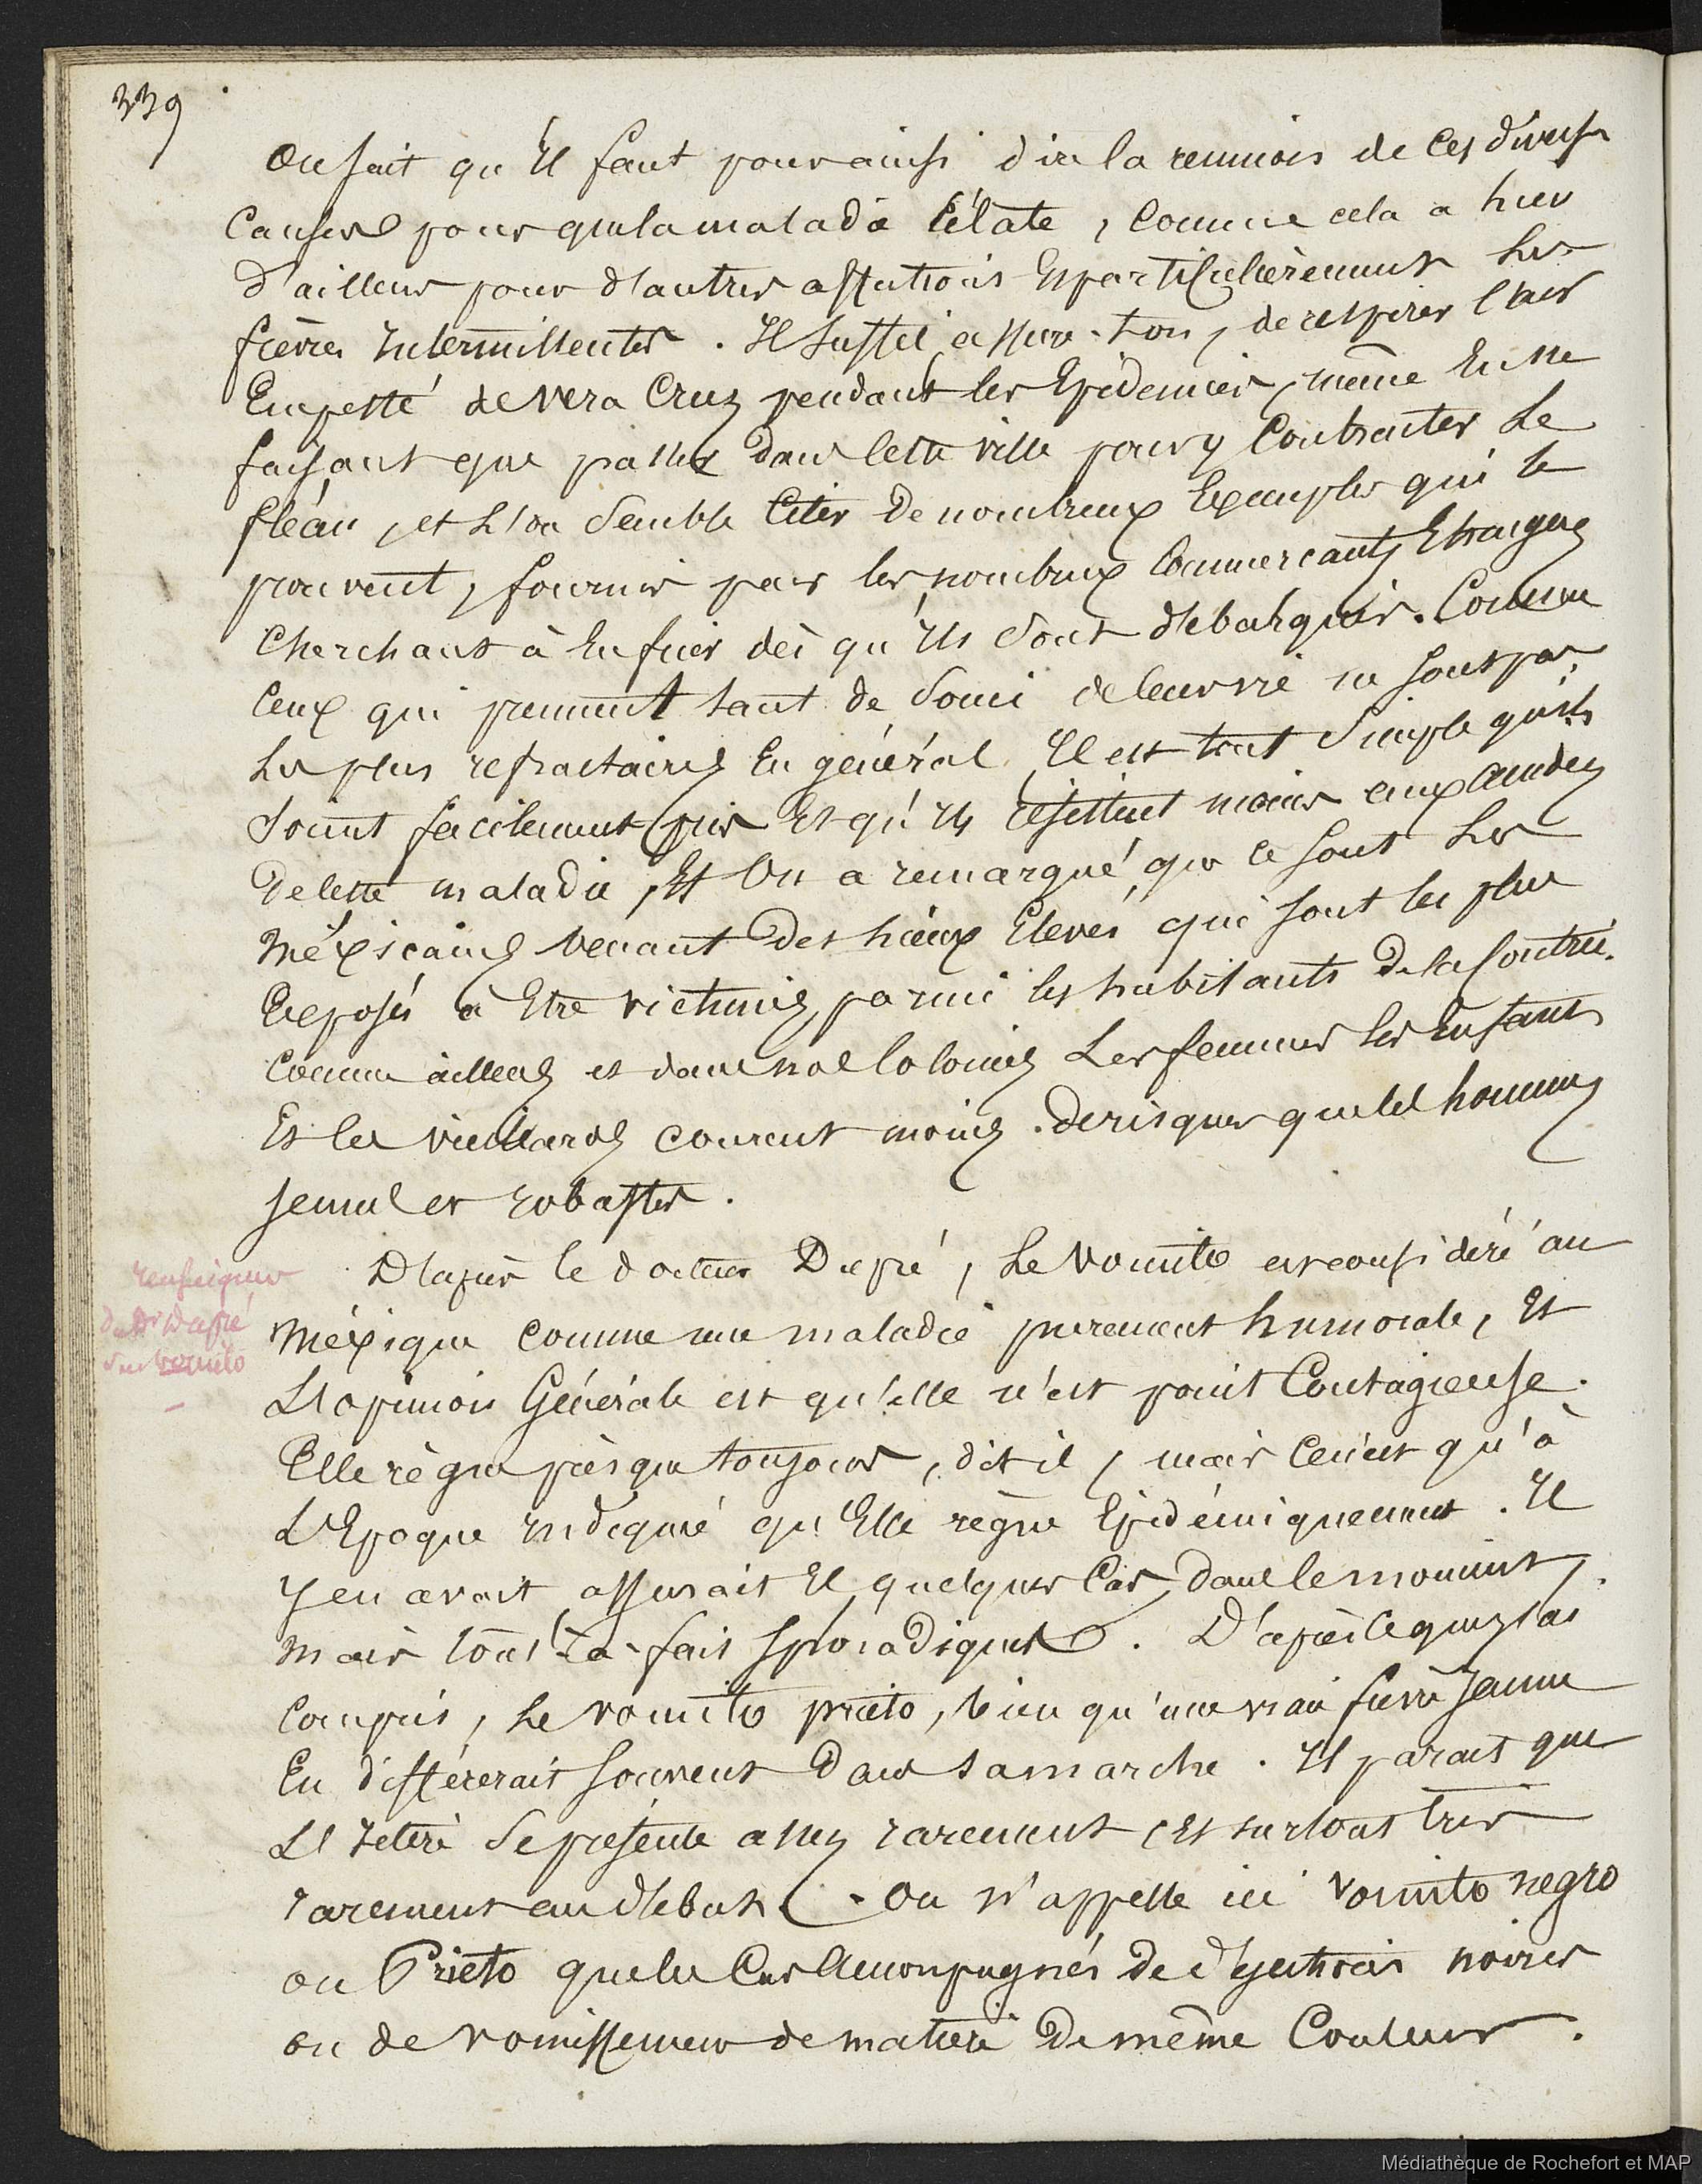 339
On sait qu'Il faut pour ainsi dire la reunion de Ces diverses
Causes pour que la maladie Eclate, Comme cela a lieu
d'ailleurs pour d'autres affections Et particulièrement Les
fièvres Intermittentes. Il Suffit assure-t-on, de respirer l'air
Empesté de Vera Cruz pendant les Epidemies, même En ne
faisant que passer Dans Cette ville pour y Contracter Le
fléau, et L'on Semble Citer De nombreux Exemples qui le
prouvent, fournis par les nombreux Commercants Etrangers
Cherchant à En fuir dès qu'Ils Sont débarqués. Comme
Ceux qui prennent tant de Souci de leur vie ne sont pas
Les plus refractaires En général, Il est tout Simple qu'ils
Soient facilement pris Et qu'Ils résistent moins aux
De Cette maladie, Et On a remarqué que Ce sont Les
Méxicains venant Des Lieux Elevés qui sont les plus
Exposés à Etre victimes, parmi les habitants De la Contrée.
Comme ailleurs et dans nos Colonies Les femmes les Enfants
Et les vieillards courent moins de risques que les hommes
jeunes et robustes.
renseignem
du Dr Dupré
Sur vomito
D'après le docteur Dupré, Le Vomito est considéré au
Méxique Comme une maladie purement humorale, Et
L'opinion Générale est qu'elle n'est point Contagieuse.
Elle règne prèsque toujours, dit il, mais Ce n'est qu'à
L'Epoque Indiquée qu'Elle règne Epidémiquement. Il
y en avait assurait Il quelques Cas, Dans le moment,
mais tout-à-fait sporadiques. D'après Ce que j'ai
Compris, Le vomito prieto, bien qu'une vraie fièvre jaune
En différerait souvent Dans sa marche. Il parait que
L'Ictère Se présente assez rarement, Et surtout très
rarement au début. On n'appelle ici vomito negro
ou Prieto que les Cas Accompagnés De déjections noires
ou de vomissemens de matière De même Couleur.
Médiathèque de Rochefort et MAP